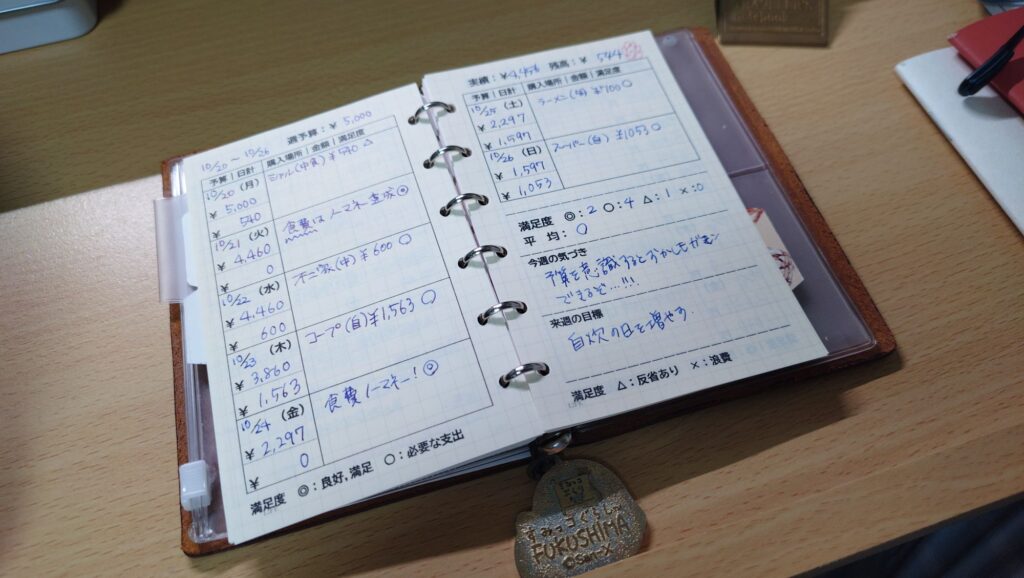 10/20 〜 10/26 週予算:¥ 5,000
予算|日計 購入場所|金額|満足度
10/20 (月)
¥ 5,000
¥ 540
(中食) ¥540 △
10/21 (火)
¥ 4,460
0
食費はノーマネー達成◎
10/22 (水)
¥ 4,460
¥ 600
不二家(中) ¥600 ○
10/23 (木)
¥ 3,860
¥ 1,563
コープ(自) ¥1,563 ○
10/24 (金)
¥ 2,297
¥ 0
食費ノーマネー!◎
満足度 ◎:良好,満足 ○:必要な支出
実績:¥4,456 残高:¥ 544
予算|日計 購入場所|金額|満足度
10/25 (土)
¥ 2,297
¥ 1,597
ラーメン(外) ¥700 ○
10/26 (日)
¥ 1,597
¥ 1,053
スーパー(自) ¥1053 ○
満足度 ◎:2 ○:4 △:1 ×:0
平均:○
今週の気づき
予算を意識すると
できるぞ…!!!
来週の目標
自炊の日を増やす.
満足度 △:反省あり ×:浪費
すみっコぐらし
FUKUSHIMA
©San-X